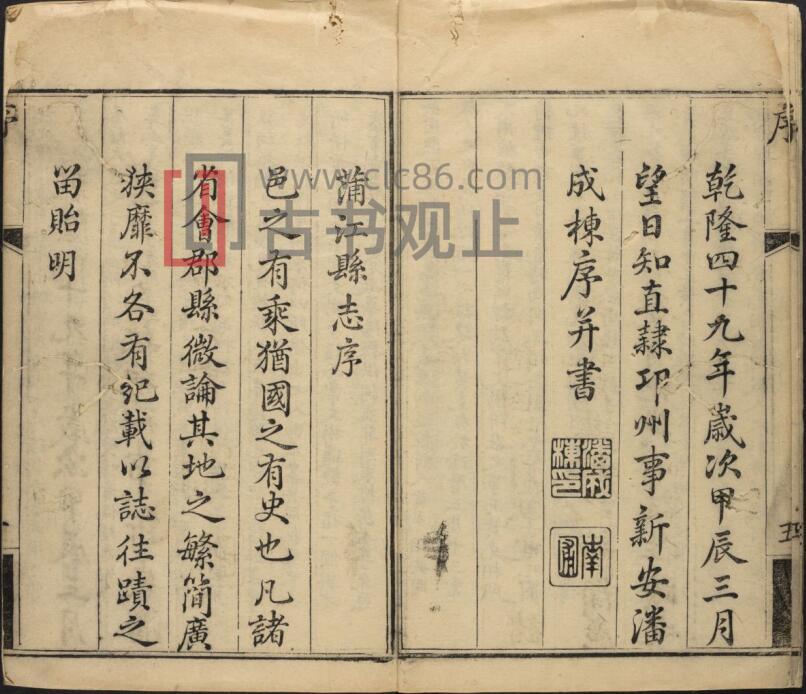 序
乾隆四十九年歲次甲辰三月
望日知直隸邛州事新安潘
成棟序并書
潘成棟印
五
蒲江縣志序
邑之有乘猶國之有史也凡諸
省會郡縣微論其地之繁簡廣
狹靡不各有紀載以誌往蹟之
留貽明
www.clc86.com
古书观止